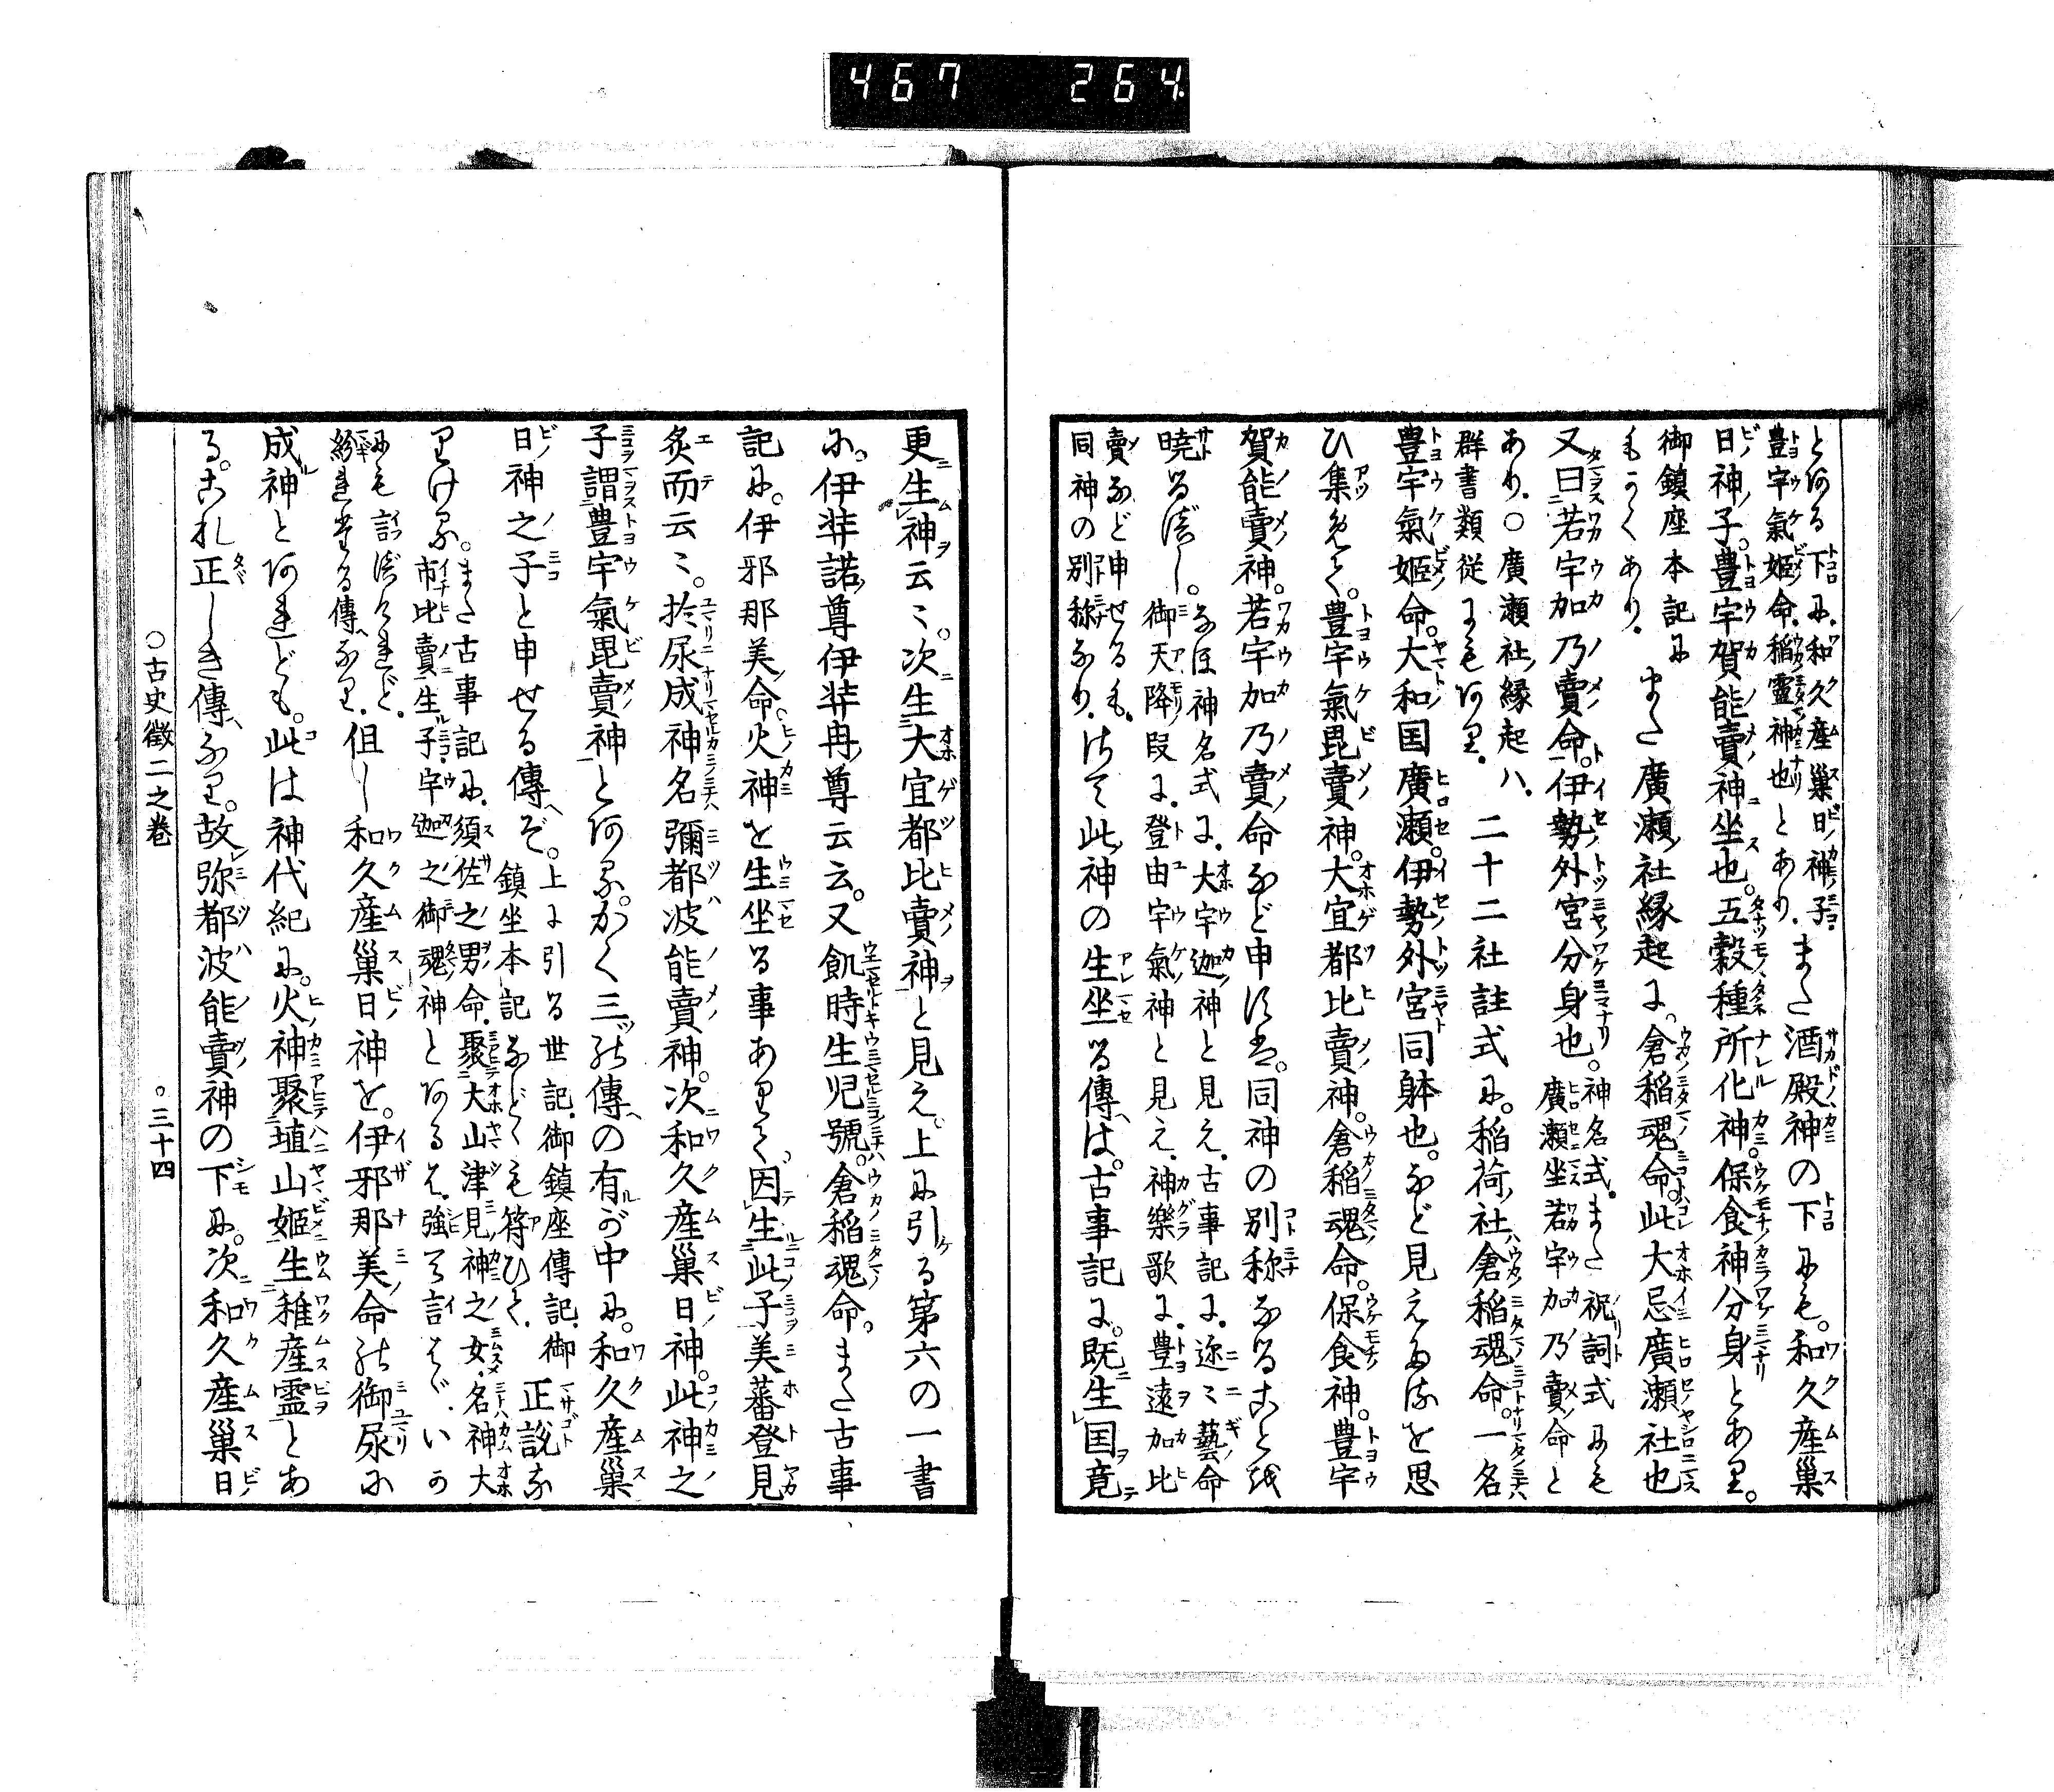 467 264
とある下に。和久産巣日神子
豊宇氣姫命。稲靈神也とあり。また酒殿神の下にも。和久産巣
日神子。豊宇賀能賣神坐也。五穀種所化神。保食神分身とあり。
御鎮座本記に
もかくあり。また廣瀬社縁起に。倉稲魂命。此大忌廣瀬社也
又曰若宇加乃賣命。伊勢外宮分身也。神名式。また祝詞式にも
廣瀬坐若宇加乃賣命と
あり。○廣瀬社縁起ハ。
群書類従にもあり。二十二社註式に。稲荷社倉稲魂命。一名
豊宇氣姫命。大和国廣瀬。伊勢外宮同躰也。など見えたるを思
ひ集めて。豊宇氣毘賣神。大宜都比賣神。倉稲魂命。保食神。豊宇
賀能賣神。若宇加乃賣命など申すは。同神の別称なることを
曉るべし。なほ神名式に。大宇迦神と見え。古事記に。迩々藝命
御天降段に。登由宇氣神と見え。神樂歌に。豊遠加比
賣など申せるも。
同神の別称なり。さて此神の生坐る傳は。古事記に。既生国竟
更生神云々。次生大宜都比賣神と見え。上に引る第六の一書
に。伊弉諾尊伊弉冉尊云云。又飢時生児號。倉稲魂命。また古事
記に。伊邪那美命。火神を生坐る事ありて。因生此子美蕃登見
炙而云々。於尿成神名彌都波能賣神。次和久産巣日神。此神之
子謂豊宇氣毘賣神とあり。かく三つの傳の有が中に。和久産巣
日神之子と申せる傳ぞ。上に引る世記。御鎮座傳記。御
鎮坐本記などくも符ひて。正説な
りける。また古事記に。須佐之男命。聚大山津見神之女。名神大
市比賣生子。宇迦之御魂神とあるは。強て言はゞ。いか
にも言べけれど。
紛れたる傳なり。但し和久産巣日神を。伊邪那美命の御尿に
成神とあれども。此は神代紀に。火神聚埴山姫生稚産霊とあ
る。これ正しき傳なり。故弥都波能賣神の下に。次和久産巣日
○古史徴二之巻 ○三十四